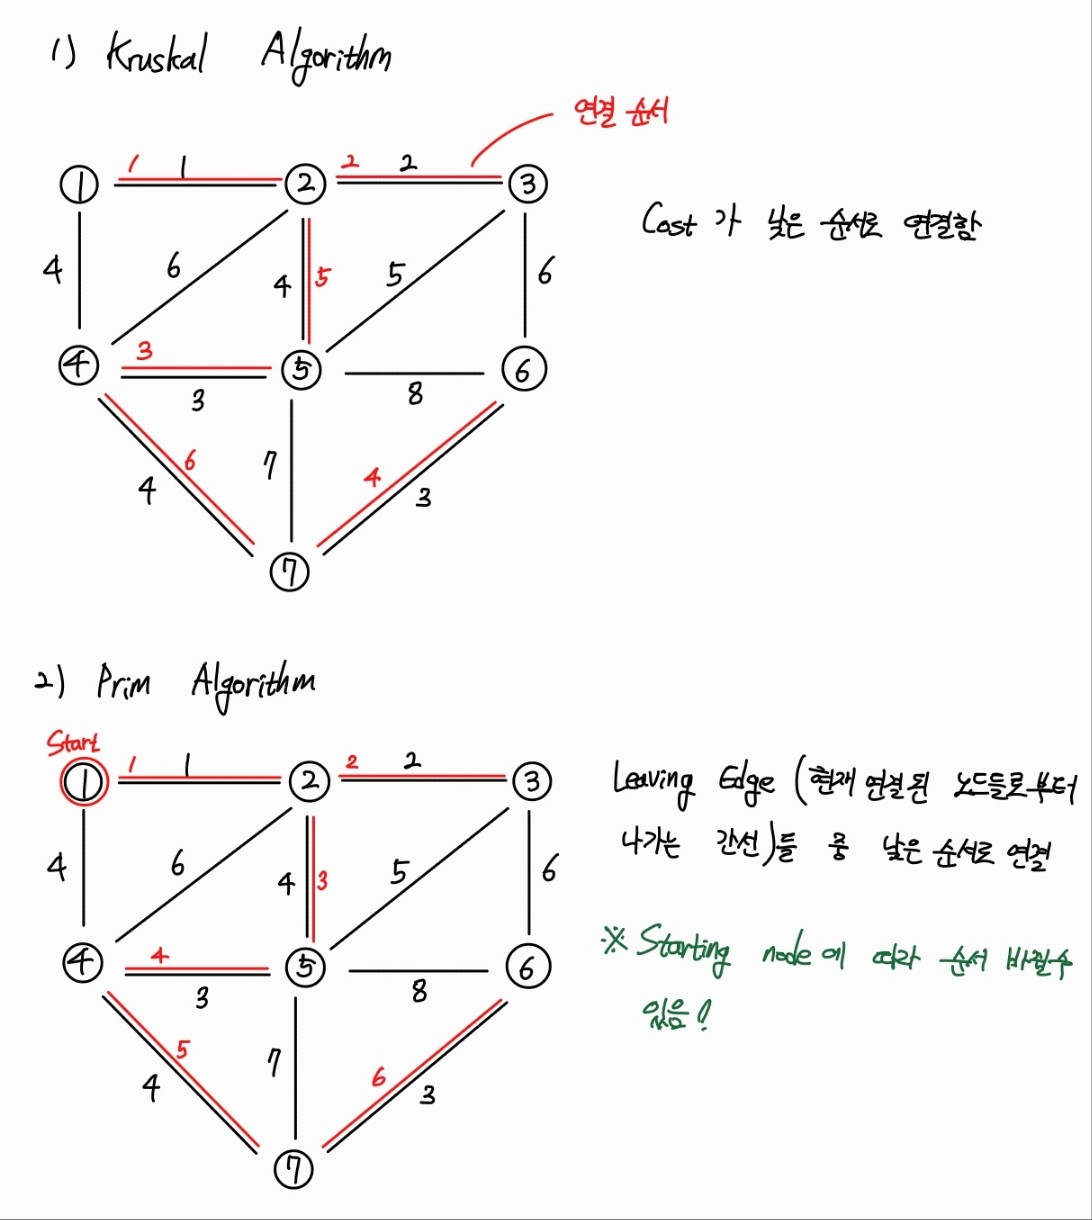 1) Kruskal Algorithm
연결 순서
① 1 1 ② 2 2 ③
Cost 가 낮은 순서로 연결함
4 6 4 5 5 6
④ 3 3 ⑤ 8 ⑥
4 6 7 4 3
⑦
2) Prim Algorithm
Start
① 1 1 ② 2 2 ③
Leaving Edge (현재 연결된 노드들로부터
나가는 간선)들 중 낮은 순서로 연결
4 6 4 3 5 6
※ Starting node에 따라 순서 바뀔수
있음!
④ 4 3 ⑤ 8 ⑥
4 5 7 6 3
⑦